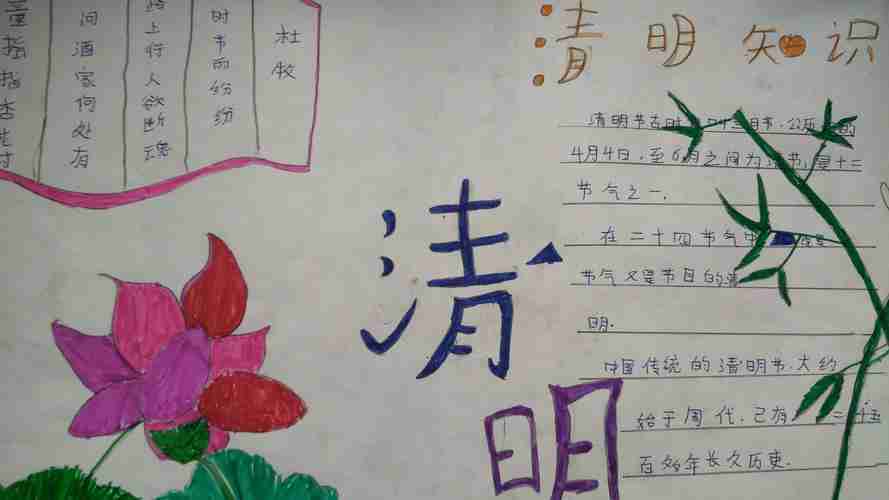 杜牧
时节雨纷纷
路上行人欲断魂
问酒家何处有
童摇指杏花村
清明知识
清明节古时 三月节,公历
4月4日,至6月之间为 节,是十二
节气之一,
在二十四节气中
节气又是节日的
明.
中国传统的清明节,大约
始于周代,已有 二千五
百多年长久历史.
清
明